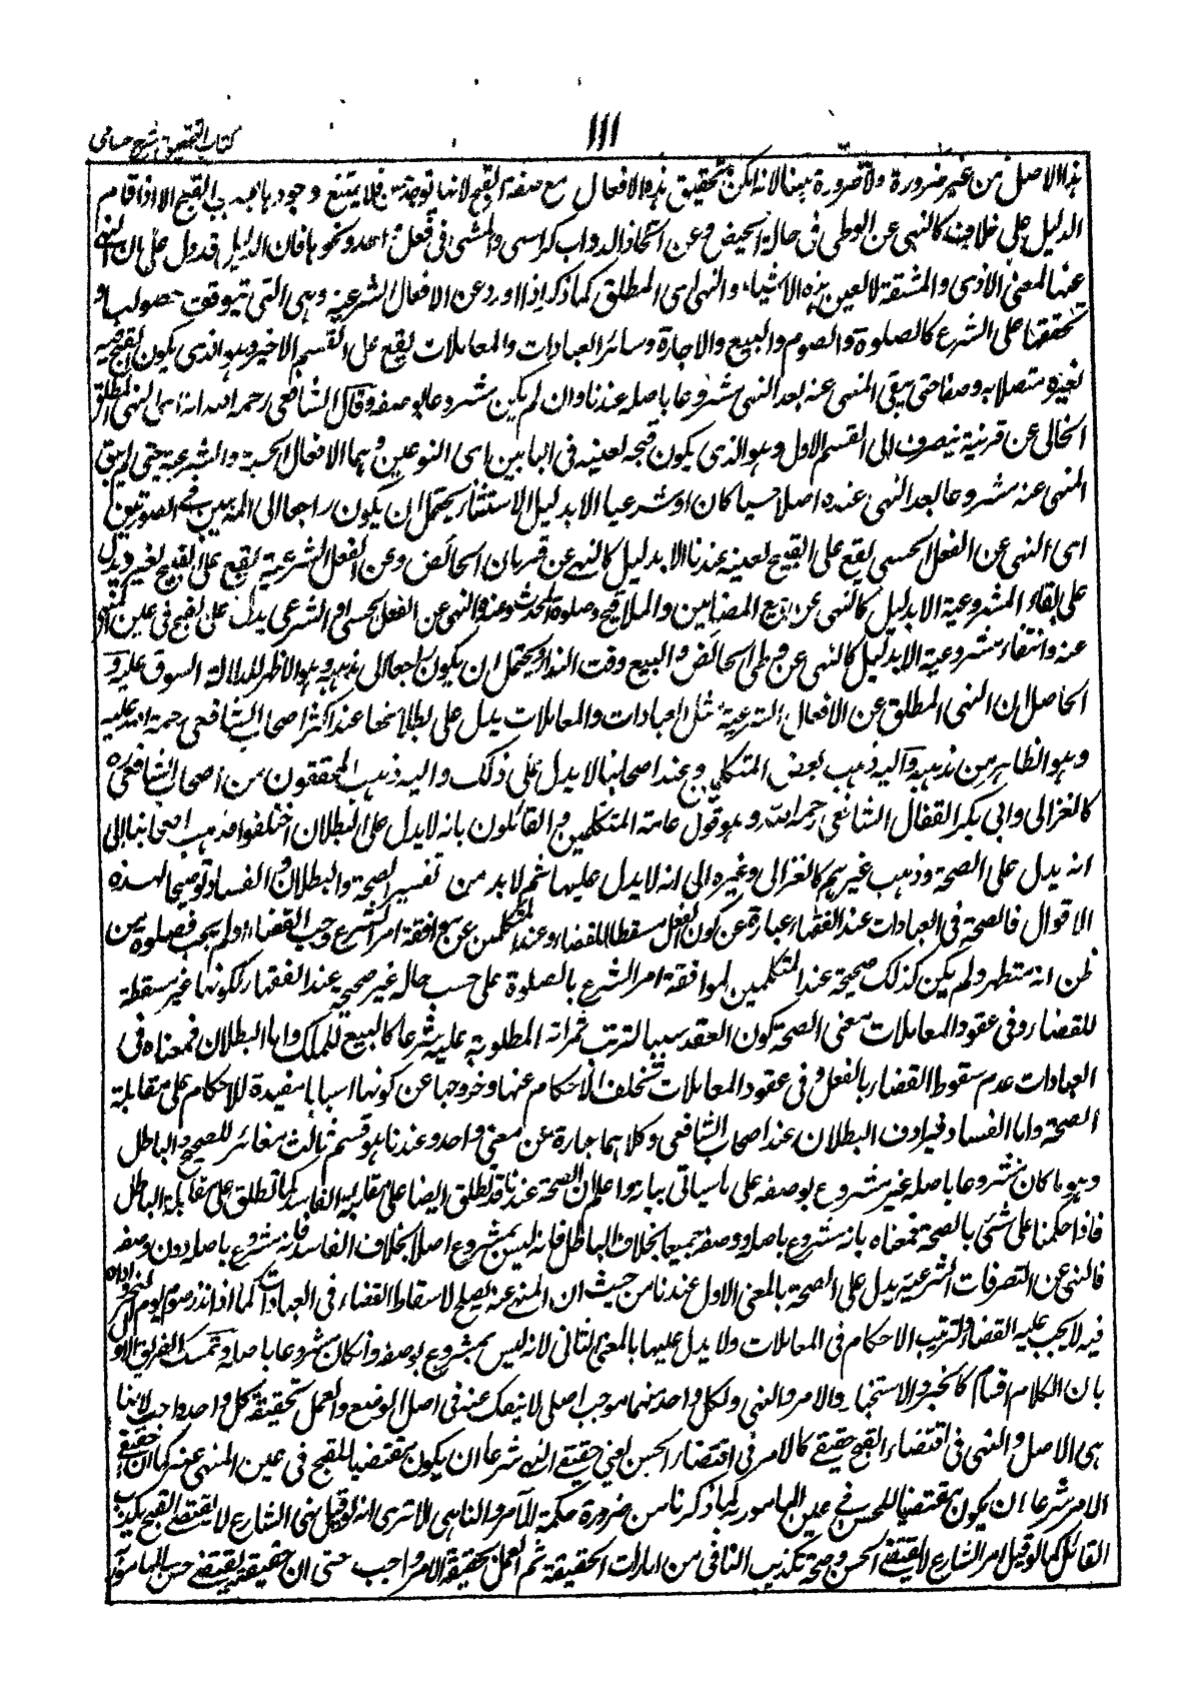 كتاب التحقيق شرح حسامى
١١١
هذا الاصل من غير ضرورة ولا ضرورة ههنا لانه امكن تحقيق هذه الافعال مع صفة القبح لانها توجد حسا فلا يمتنع وجودها بسبب القبح الا اذا قام
الدليل على خلافه كالنهى عن الوطى فى حالة الحيض وعن اتخاذ الدواب كراسى والمشى فى نعل واحد ونحوها فان الدليل قد دل على ان النهى
عنها لمعنى الاذى والمشقة لا لعين هذه الاشياء والنهى اى المطلق كما ذكر اذا ورد عن الافعال الشرعية وهى التى يتوقف حصولها و
تحققها على الشرع كالصلوة والصوم والبيع والاجارة وسائر العبادات والمعاملات يقع على القسم الاخير وهو الذى يكون القبح فيه
لغيره متصلا به وصفا حتى يبقى المنهى عنه بعد النهى مشروعا باصله عندنا وان لم يكن مشروعا بوصفه وقال الشافعى رحمه الله انه اى النهى المطلق
الخالى عن قرينة ينصرف الى القسم الاول وهو الذى يكون قبحه لعينه فى البابين اى النوعين وهما الافعال الحسية والشرعية حتى لم يبق
المنهى عنه مشروعا بعد النهى عنده اصلا حسيا كان او شرعيا الا بدليل الاستثناء يحتمل ان يكون راجعا الى المذهبين فى الصورتين
اى النهى عن الفعل الحسى يقع على القبيح لعينه عندنا الا بدليل كالنهى عن قربان الحائض وعن الفعل الشرعية يقع على القبيح لغيره ويدل
على بقاء المشروعية الا بدليل كالنهى عن بيع المضامين والملاقيح وصلوة المحدث وعنده النهى عن الفعل الحسى والشرعى يدل على القبح فى عين المنهى
عنه وانتفاء مشروعية الا بدليل كالنهى عن وطى الحائض والبيع وقت النداء ويحتمل ان يكون راجعا الى مذهبه وهو الاظهر لدلالة السوق عليه و
الحاصل ان النهى المطلق عن الافعال الشرعية مثل العبادات والمعاملات يدل على بطلانها عند اكثر اصحاب الشافعى رحمة الله عليه
وهو الظاهر من مذهبه واليه ذهب بعض المتكلمين وعند اصحابنا لا يدل على ذلك واليه ذهب المحققون من اصحاب الشافعى ره
كالغزالى وابى بكر القفال الشاشى رحمه الله وهو قول عامة المتكلمين والقائلون بانه لا يدل على البطلان اختلفوا فذهب اصحابنا الى
انه يدل على الصحة وذهب غيرهم كالغزالى وغيره الى انه لا يدل عليها ثم لا بد من تفسير الصحة والبطلان والفساد توضيحا لهذه
الاقوال فالصحة فى العبادات عند الفقهاء عبارة عن كون الفعل مسقطا للقضاء وعند المتكلمين عن موافقة امر الشرع وجب القضاء او لم يجب فصلوة من
ظن انه متطهر ولم يكن كذلك صحيحة عند المتكلمين لموافقة امر الشرع بالصلوة على حسب حاله غير صحيحة عند الفقهاء لكونها غير مسقطة
للقضاء وفى عقود المعاملات معنى الصحة كون العقد سببا لترتب ثمراته المطلوبة عليه شرعا كالبيع للملك واما البطلان فمعناه فى
العبادات عدم سقوط القضاء بالفعل وفى عقود المعاملات تخلف الاحكام عنها وخروجها عن كونها اسبابا مفيدة للاحكام على مقابلة
الصحة واما الفساد فيرادف البطلان عند اصحاب الشافعى وكلاهما عبارة عن معنى واحد وعندنا هو قسم ثالث مغائر للصحيح والباطل
وهو ما كان مشروعا باصله غير مشروع بوصفه على ما سياتى بيانه واعلم ان الصحة عندنا قد تطلق ايضا على مقابلة الفاسد كما تطلق على مقابلة الباطل
فاذا حكمنا على شئى بالصحة فمعناه بانه مشروع باصله ووصفه جميعا بخلاف الباطل فانه ليس بمشروع اصلا بخلاف الفاسد فانه مشروع باصله دون وصفه
فالنهى عن التصرفات الشرعية يدل على الصحة بالمعنى الاول عندنا من حيث ان المنهى عنه يصلح لاسقاط القضاء فى العبادات كما اذا نذر صوم يوم النحر واداه
فيه لا يجب عليه القضاء ولترتيب الاحكام فى المعاملات ولا يدل عليها بالمعنى الثانى لانه ليس بمشروع بوصفه وان كان مشروعا باصله وتمسك الفريق الاول
بان الكلام اقسام كالخبر والاستخبار والامر والنهى ولكل واحد منهما موجب اصلى لا ينفك عنه فى اصل الوضع والعمل بحقيقة كل واحد واجب لانها
هى الاصل والنهى فى اقتضاء القبح حقيقى كالامر فى اقتضاء الحسن يعنى حقيقة النهى شرعا ان يكون مقتضيا للقبح فى عين المنهى عنه كما ان حقيقة
الامر شرعا ان يكون مقتضيا للحسن فى عين المامور به لما ذكرنا من ضرورة حكمة الآمر والناهى الا ترى انه لو قيل نهى الشارع لا يقتضى القبح يكذب
القائل كما لو قيل امر الشارع لا يقتضى الحسن وصحة تكذيب النافى من امارات الحقيقة ثم العمل بحقيقة الامر واجب حتى ان حقيقته يقتضى حسن المامور